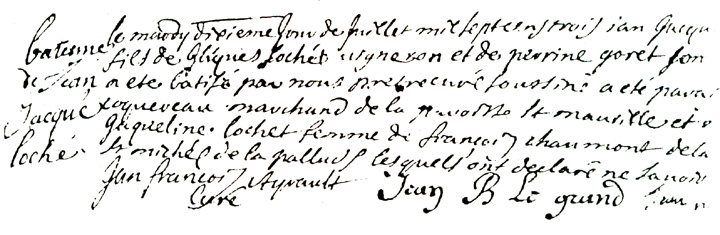 le mardy dixieme jour de juillet mil sept cens trois jan Jacqu
bateme fils de Jacques lochet vigneron et de perrine goret son
de Jean a ete batisé par nous pretre curé soussiné a été parai
Jacque roqueveau marchand de la paroisse st maurille et
loché Jaqueline lochet femme de françois chaumont de la
st michel de la pallud lesquels ont declaré ne savoir
Jan françois Ayrault Jean B Le grand
Curé